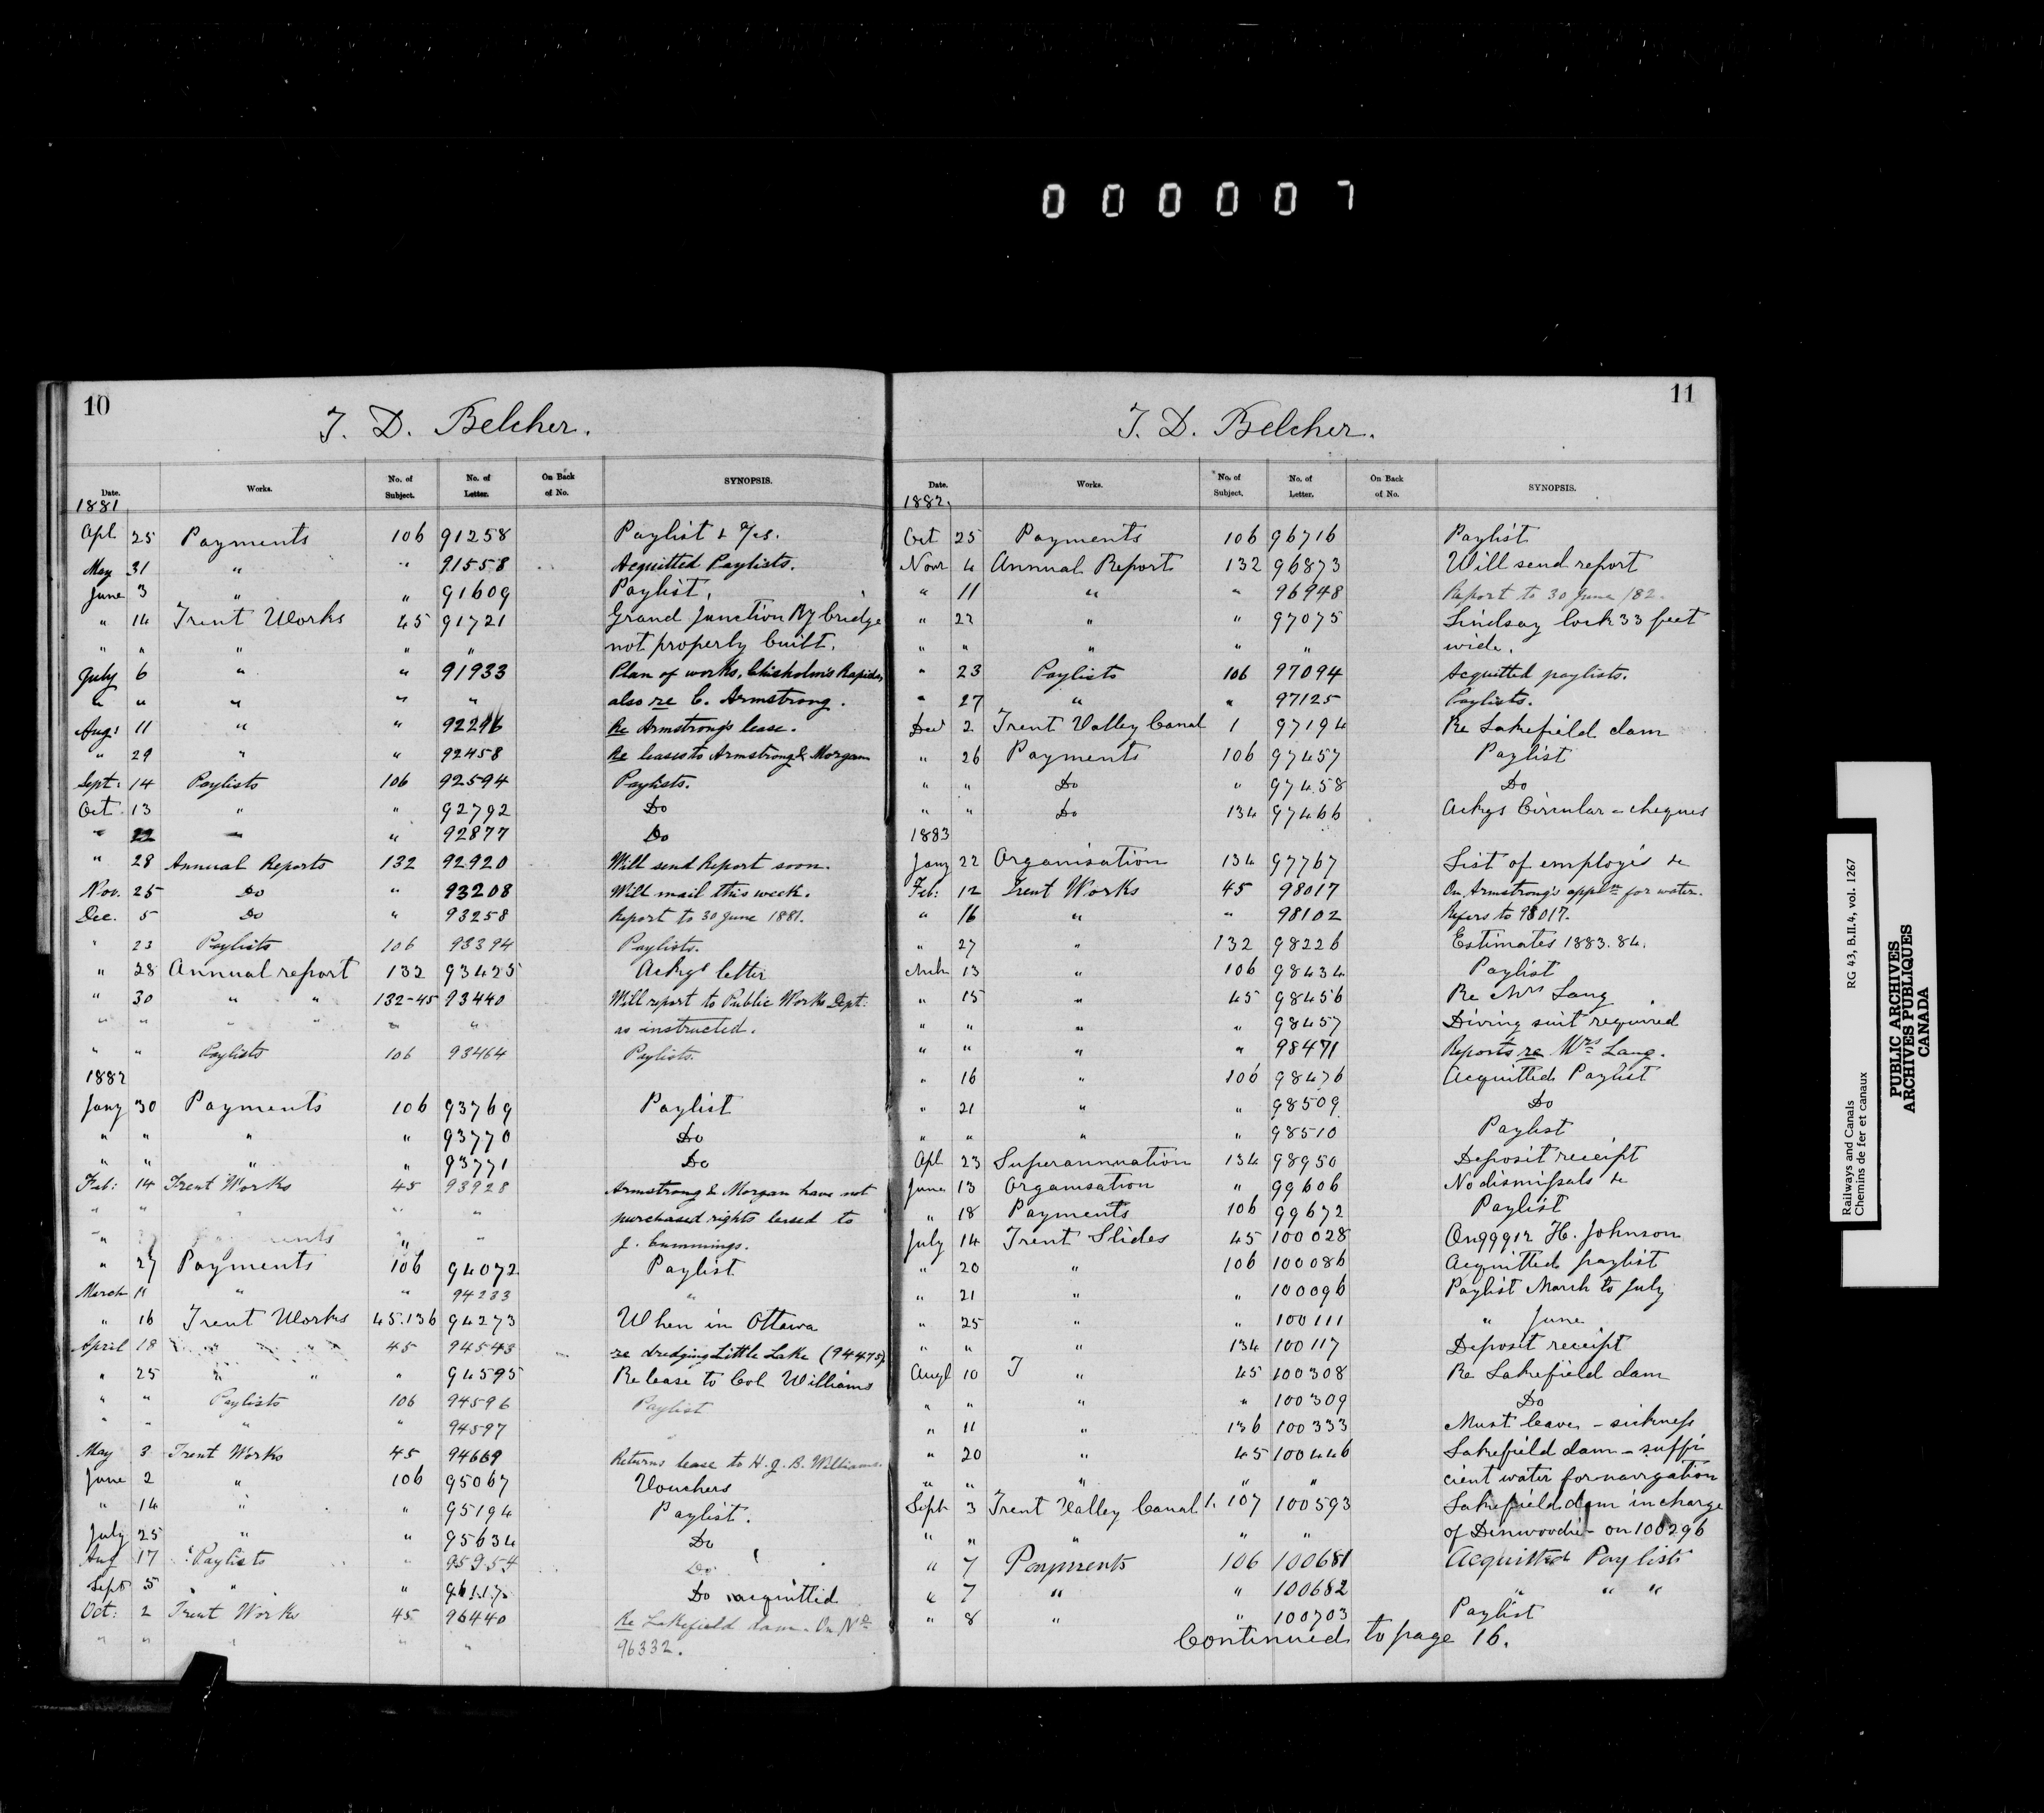 000007
10
T. D. Belcher.
Date. Works. No. of Subject. No. of Letter. On Back of No. SYNOPSIS.
1881
Apl 25 Payments 106 91258 Paylist & a/cs.
May 31 " " 91558 Acquitted Paylists.
June 3 " " 91609 Paylist.
" 14 Trent Works 45 91721 Grand Junction Ry bridge
" " " " " not properly built.
July 6 " " 91933 Plan of works, Chisholm's Rapids,
" " " " " also re C. Armstrong.
Aug: 11 " " 92296 Re Armstrong's lease.
" 29 " " 92458 Re leases to Armstrong & Morgan
Sept: 14 Paylists 106 92594 Paylists.
Oct. 13 " " 92792 Do
" 22 " " 92877 Do
" 28 Annual Reports 132 92920 Will send Report soon.
Nov. 25 Do " 93208 Will mail this week.
Dec. 5 Do " 93258 Report to 30 June 1881.
" 23 Paylists 106 93394 Paylists.
" 28 Annual report 132 93425 Ackgs letter
" 30 " " 132-45 93440 Will report to Public Works Dept:
" " " " " " as instructed.
" " Paylists 106 93464 Paylists.
1882
Jany 30 Payments 106 93769 Paylist
" " " " 93770 Do
" " " " 93771 Do
Feb: 14 Trent Works 45 93928 Armstrong & Morgan have not
" " " " " purchased rights leased to
" " " J. Cummings.
" 27 Payments 106 94072 Paylist
March 11 " " 94233 "
" 16 Trent Works 45.136 94273 When in Ottawa
April 18 " " 45 94543 re dredging Little Lake (94475)
" 25 " " " 94595 Re lease to Col Williams
" " Paylists 106 94596 Paylist
" " " " 94597 "
May 3 Trent Works 45 94669 Returns lease to H. J. B. Williams.
June 2 " 106 95067 Vouchers
" 14 " " 95194 Paylist.
July 25 " " 95634 Do
Aug 17 Paylists " 95954 Do
Sept 5 " " " 96117 Do acquitted
Oct: 2 Trent Works 45 96440 Re Lakefield dam. On No
" " " " " 96332.
11
T. D. Belcher.
Date. Works. No. of Subject. No. of Letter. On Back of No. SYNOPSIS.
1882.
Oct 25 Payments 106 96716 Paylist
Novr 4 Annual Report 132 96873 Will send report
" 11 " " 96948 Report to 30 June /82.
" 22 " " 97075 Lindsay lock 33 feet
" " " " " wide.
" 23 Paylists 106 97094 Acquitted paylists.
" 27 " " 97125 Paylists.
Decr 2 Trent Valley Canal 1 97194 Re Lakefield dam
" 26 Payments 106 97457 Paylist
" " Do " 97458 Do
" " Do 134 97466 Ackgs Circular - cheques
1883
Jany 22 Organisation 134 97767 List of employés &c
Feb: 12 Trent Works 45 98017 On Armstrong's appln for water.
" 16 " " 98102 Refers to 98017.
" 27 " 132 98226 Estimates 1883.84.
Mch 13 " 106 98434 Paylist
" 15 " 45 98456 Re Mrs Lang
" " " " 98457 Diving suit required
" " " " 98471 Reports re Mrs Lang.
" 16 " 106 98476 Acquitted Paylist
" 21 " " 98509 Do
" " " " 98510 Paylist
Apl 23 Superannuation 134 98950 Deposit receipt
June 13 Organisation " 99606 No dismissals &c
" 18 Payments 106 99672 Paylist
July 14 Trent Slides 45 100028 On 99912 H. Johnson
" 20 " 106 100086 Acquitted paylist
" 21 " " 100096 Paylist March to July
" 25 " " 100111 " June
" " " 134 100117 Deposit receipt
Augt 10 T " 45 100308 Re Lakefield dam
" " " " 100309 Do
" 11 " 136 100333 Must leave - sickness
" 20 " 45 100446 Lakefield dam - suffi
" " " " " cient water for navigation
Sept 3 Trent Valley Canal 1. 107 100593 Lakefield dam in charge
" " " " " of Dinwoodie - on 100296
" 7 Payments 106 100681 Acquitted Paylists
" 7 " " 100682 " " "
" 8 " " 100703 Paylist
Continued to page 16.
Railways and Canals RG 43, B.II.4, vol. 1267
Chemins de fer et canaux
PUBLIC ARCHIVES
ARCHIVES PUBLIQUES
CANADA